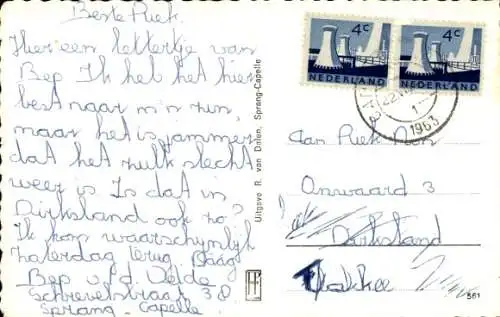 Beste Riek.
Hier een lettertje van
Bep. Ik heb het hier
best naar m'n zin,
maar het is jammer
dat het zulk slecht
weer is Is dat in
Dirksland ook zo?
Ik kom waarschynlyk
zaterdag terug. Daag
Bep v.d. Velde
Schrevelstraat 38
Sprang-Capelle
Uitgave R. van Dalen, Sprang-Capelle
4c
NEDERLAND
4c
NEDERLAND
1963
Aan Riek
Onwaard 3
Dirksland
Flakkee
561